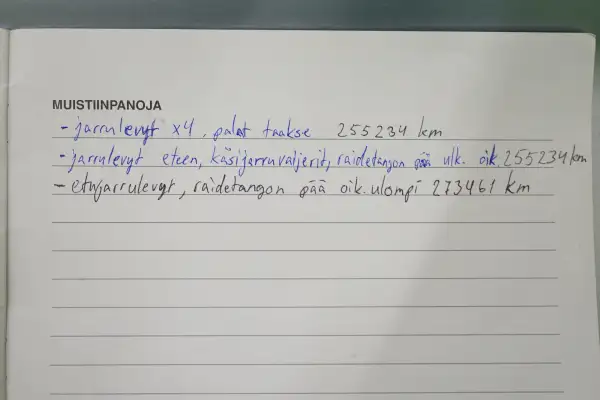 MUISTIINPANOJA
- jarrulevyt x4, palat taakse 255234 km
- jarrulevyt eteen, käsijarruvaijerit, raidetangon pää ulk. oik 255234 km
- etujarrulevyt, raidetangon pää oik. ulompi 273461 km